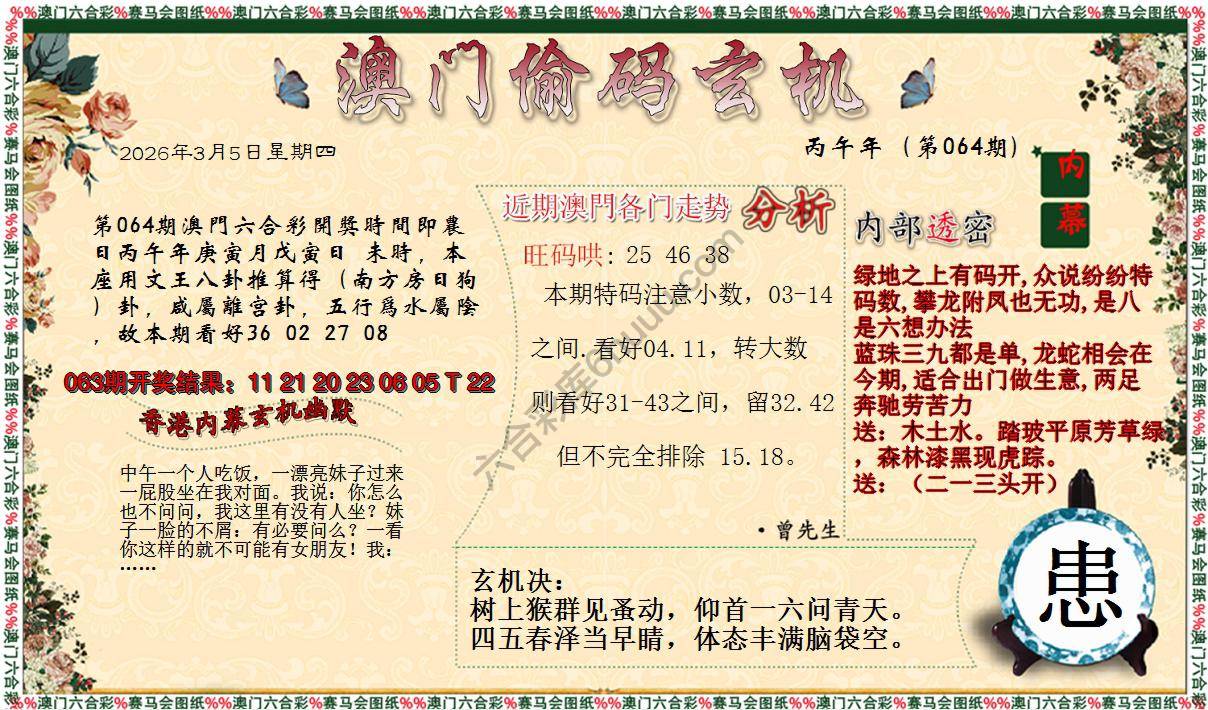 %%澳门六合彩%赛马会图纸%%澳门六合彩%赛马会图纸%%澳门六合彩%赛马会图纸%%澳门六合彩%赛马会图纸%%澳门六合彩%赛马会图纸%%澳门六合彩%赛马会图纸%%
澳门偷码玄机
2026年3月5日星期四
丙午年（第064期）
内幕
第064期澳門六合彩開獎時間即農
日丙午年庚寅月戊寅日 未時，本
座用文王八卦推算得（南方房日狗
）卦，咸屬離宫卦，五行爲水屬陰
，故本期看好36 02 27 08
063期开奖结果：11 21 20 23 06 05 T 22
香港内幕玄机幽默
中午一个人吃饭，一漂亮妹子过来
一屁股坐在我对面。我说：你怎么
也不问问，我这里有没有人坐？妹
子一脸的不屑：有必要问么？一看
你这样的就不可能有女朋友！我：
……
近期澳門各门走势 分析
旺码哄: 25 46 38
本期特码注意小数，03-14
之间.看好04.11，转大数
则看好31-43之间，留32.42
但不完全排除 15.18。
·曾先生
内部透密
绿地之上有码开,众说纷纷特
码数,攀龙附凤也无功,是八
是六想办法
蓝珠三九都是单,龙蛇相会在
今期,适合出门做生意,两足
奔驰劳苦力
送：木土水。踏玻平原芳草绿
，森林漆黑现虎踪。
送：（二一三头开）
玄机决：
树上猴群见蚤动，仰首一六问青天。
四五春泽当早晴，体态丰满脑袋空。
患
%%澳门六合彩%赛马会图纸%%澳门六合彩%赛马会图纸%%澳门六合彩%赛马会图纸%%澳门六合彩%赛马会图纸%%澳门六合彩%赛马会图纸%%澳门六合彩%赛马会图纸%%